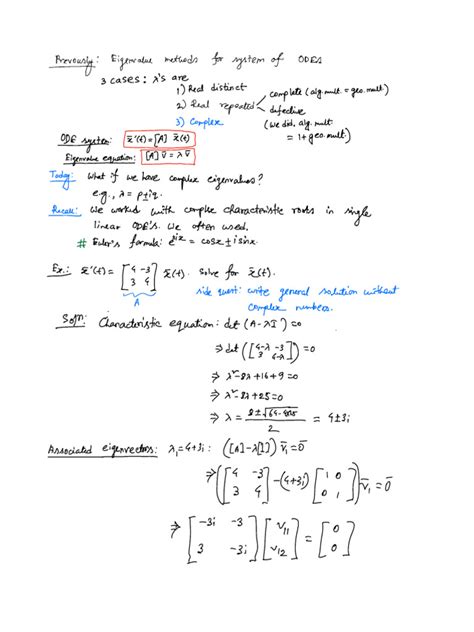 Previously: Eigenvalue methods for system of ODES
3 cases: λ's are
1) Real distinct
2) Real repeated < complete (alg. mult. = geo. mult.)
defective
(we did, alg. mult
= 1+geo. mult)
3) Complex
ODE system: x̄'(t)=[A] x̄(t)
Eigenvalue equation: [A] v̄ = λ v̄
Today: What if we have complex eigenvalues?
e.g., λ = p±iq.
Recall: We worked with complex characteristic roots in single
linear ODE's. We often used.
# Euler's formula: e^ix = cosx ± i sinx.
Ex.: x̄'(t) = [4 -3; 3 4] x̄(t). Solve for x̄(t).
A
side quest: write general solution without
complex numbers.
Soln: Characteristic equation: det (A-λI) =0
⇒ det ([4-λ -3; 3 4-λ]) =0
⇒ λ²-8λ+16+9=0
⇒ λ²-8λ+25=0
⇒ λ = (8±√64-4·25)/2 = 4±3i
Associated eigenvectors: λ₁=4+3i: ([A]-λ[I]) v̄₁=0̄
⇒ ([4 -3; 3 4] -(4+3i) [1 0; 0 1]) v̄₁ = 0̄
⇒ [-3i -3; 3 -3i] [v₁₁; v₁₂] = [0; 0]